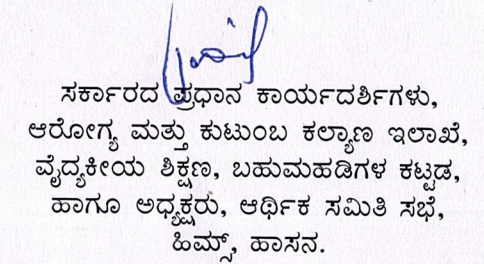 ಸರ್ಕಾರದ ಪ್ರಧಾನ ಕಾರ್ಯದರ್ಶಿಗಳು,
ಆರೋಗ್ಯ ಮತ್ತು ಕುಟುಂಬ ಕಲ್ಯಾಣ ಇಲಾಖೆ,
ವೈದ್ಯಕೀಯ ಶಿಕ್ಷಣ, ಬಹುಮಹಡಿಗಳ ಕಟ್ಟಡ,
ಹಾಗೂ ಅಧ್ಯಕ್ಷರು, ಆರ್ಥಿಕ ಸಮಿತಿ ಸಭೆ,
ಹಿಮ್ಸ್, ಹಾಸನ.